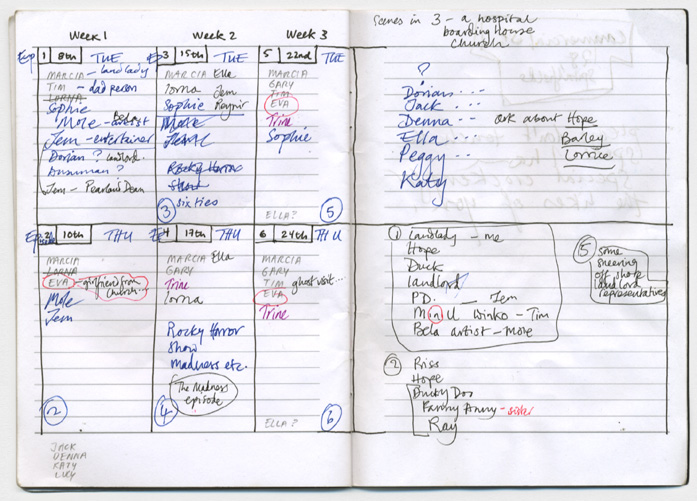 Week 1
Week 2
Week 3
Ep 1 8th TUE
MARCIA - landlady
TIM - dad person
LORNA
Sophie
Bela
Mole - artist
Jem - entertainer
Dorian? landlord.
Dunnman?
Jem - Pearlous Dean
Ep 3 15th TUE
MARCIA Ella
Lorna Jem
Sophie
Mole
Jem
Rocky Horror
Show
sixties
3
5 22nd TUE
MARCIA
GARY
TIM
EVA
Trine
Sophie
ELLA?
5
Ep 2 10th THU
MARCIA
LORNA
EVA - girlfriend from
children...
Mole
Jem
2
Ep 4 17th THU
MARCIA Ella
GARY
Trine
Lorna
Rocky Horror
Show
Madness etc.
The Madness
episode
4
6 24th THU
MARCIA
GARY
TIM ghost visit...
EVA
Trine
ELLA?
6
JACK
DENNA
KATY
LUCY
Scenes in 3 - a hospital
boarding house
church
?
Dorian...
Jack...
Denna - ask about Hope
Ella... Barley
Peggy... Lorrie
Katy
1 Landlady - me
Hope
Duck
landlord
P.D. Jem
Min U Winko - Tim
Bela artist - Mole
5 some
sneering
off shore
landlord
representative
2 Riss
Hope
Ducky Doo
Fanny Anny - sister
Ray